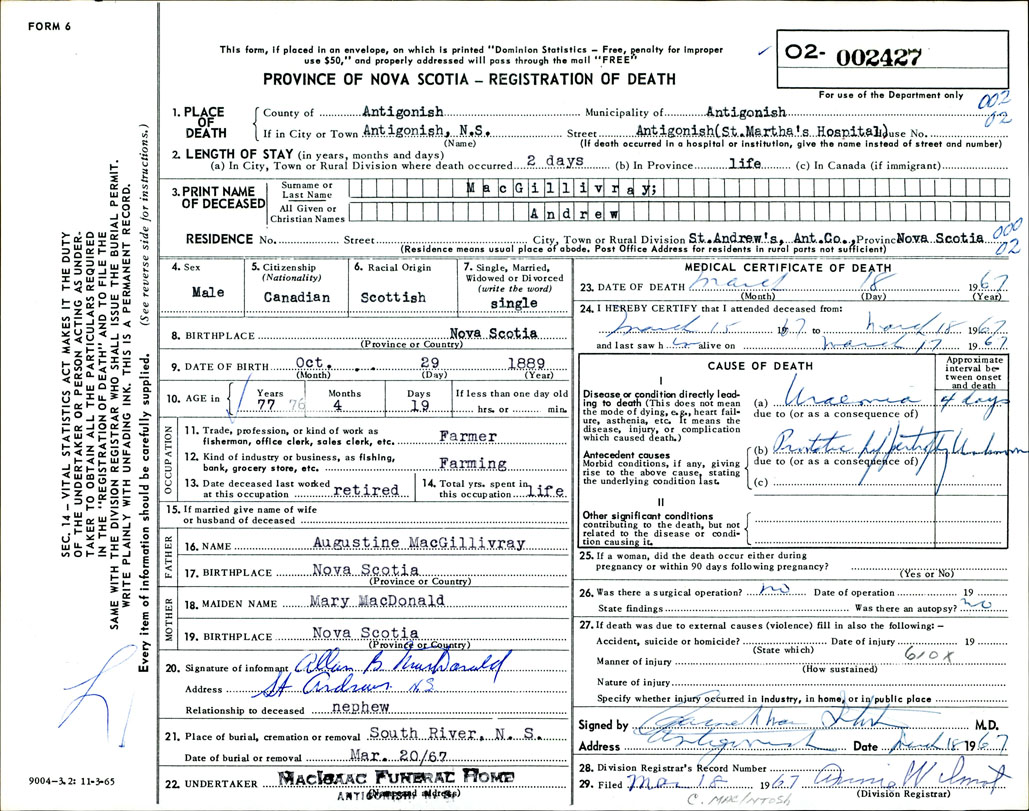 FORM 6
This form, if placed in an envelope, on which is printed "Dominion Statistics – Free, penalty for improper
use $50," and properly addressed will pass through the mail "FREE"
PROVINCE OF NOVA SCOTIA – REGISTRATION OF DEATH
02- 002427
For use of the Department only
002
02
1. PLACE OF DEATH
County of Antigonish Municipality of Antigonish
If in City or Town Antigonish, N.S. Street Antigonish(St.Martha's Hospital) House No.
(Name) (If death occurred in a hospital or institution, give the name instead of street and number)
2. LENGTH OF STAY (in years, months and days)
(a) In City, Town or Rural Division where death occurred 2 days (b) In Province life (c) In Canada (if immigrant)
3. PRINT NAME OF DECEASED
Surname or Last Name MacGillivray;
All Given or Christian Names Andrew
RESIDENCE No. Street City, Town or Rural Division St.Andrew's, Ant.Co., Province Nova Scotia
000
02
(Residence means usual place of abode. Post Office Address for residents in rural parts not sufficient)
4. Sex Male
5. Citizenship (Nationality) Canadian
6. Racial Origin Scottish
7. Single, Married, Widowed or Divorced (write the word) single
8. BIRTHPLACE Nova Scotia
(Province or Country)
9. DATE OF BIRTH Oct. 29 1889
(Month) (Day) (Year)
10. AGE in Years 77 76 Months 4 Days 19 If less than one day old
hrs. or min.
OCCUPATION
11. Trade, profession, or kind of work as
fisherman, office clerk, sales clerk, etc. Farmer
12. Kind of industry or business, as fishing,
bank, grocery store, etc. Farming
13. Date deceased last worked
at this occupation retired
14. Total yrs. spent in
this occupation life
15. If married give name of wife
or husband of deceased
FATHER
16. NAME Augustine MacGillivray
17. BIRTHPLACE Nova Scotia
(Province or Country)
MOTHER
18. MAIDEN NAME Mary MacDonald
19. BIRTHPLACE Nova Scotia
(Province or Country)
20. Signature of informant Allan B MacDonald
Address St Andrews N.S
Relationship to deceased nephew
21. Place of burial, cremation or removal South River, N. S.
Date of burial or removal Mar. 20/67
22. UNDERTAKER MacIsaac Funeral Home
ANTIGONISH, N. S.
MEDICAL CERTIFICATE OF DEATH
23. DATE OF DEATH March 18 1967
(Month) (Day) (Year)
24. I HEREBY CERTIFY that I attended deceased from:
March 15 1967 to March 18 1967
and last saw h im alive on March 17 1967
CAUSE OF DEATH
Approximate interval between onset and death
I
Disease or condition directly leading to death (This does not mean
the mode of dying, e.g., heart failure, asthenia, etc. It means the
disease, injury, or complication
which caused death.)
(a) Uraemia 4 days
due to (or as a consequence of)
Antecedent causes
Morbid conditions, if any, giving
rise to the above cause, stating
the underlying condition last.
(b) Prostatic hypertrophy Unknown
due to (or as a consequence of)
(c)
II
Other significant conditions
contributing to the death, but not
related to the disease or condition causing it.
25. If a woman, did the death occur either during
pregnancy or within 90 days following pregnancy?
(Yes or No)
26. Was there a surgical operation? no Date of operation 19
State findings Was there an autopsy? no
27. If death was due to external causes (violence) fill in also the following: –
Accident, suicide or homicide? Date of injury 19
(State which) 610X
Manner of injury
(How sustained)
Nature of injury
Specify whether injury occurred in industry, in home, or in public place
Signed by M.D.
Address Antigonish Date March 18 1967
28. Division Registrar's Record Number
29. Filed Mar 18 1967
(Division Registrar)
C. MACINTOSH
SEC. 14 – VITAL STATISTICS ACT MAKES IT THE DUTY
OF THE UNDERTAKER OR PERSON ACTING AS UNDER-
TAKER TO OBTAIN ALL THE PARTICULARS REQUIRED
IN THE "REGISTRATION OF DEATH" AND TO FILE THE
SAME WITH THE DIVISION REGISTRAR WHO SHALL ISSUE THE BURIAL PERMIT.
WRITE PLAINLY WITH UNFADING INK. THIS IS A PERMANENT RECORD.
Every item of information should be carefully supplied. (See reverse side for instructions.)
9004–3.2: 11-3-65